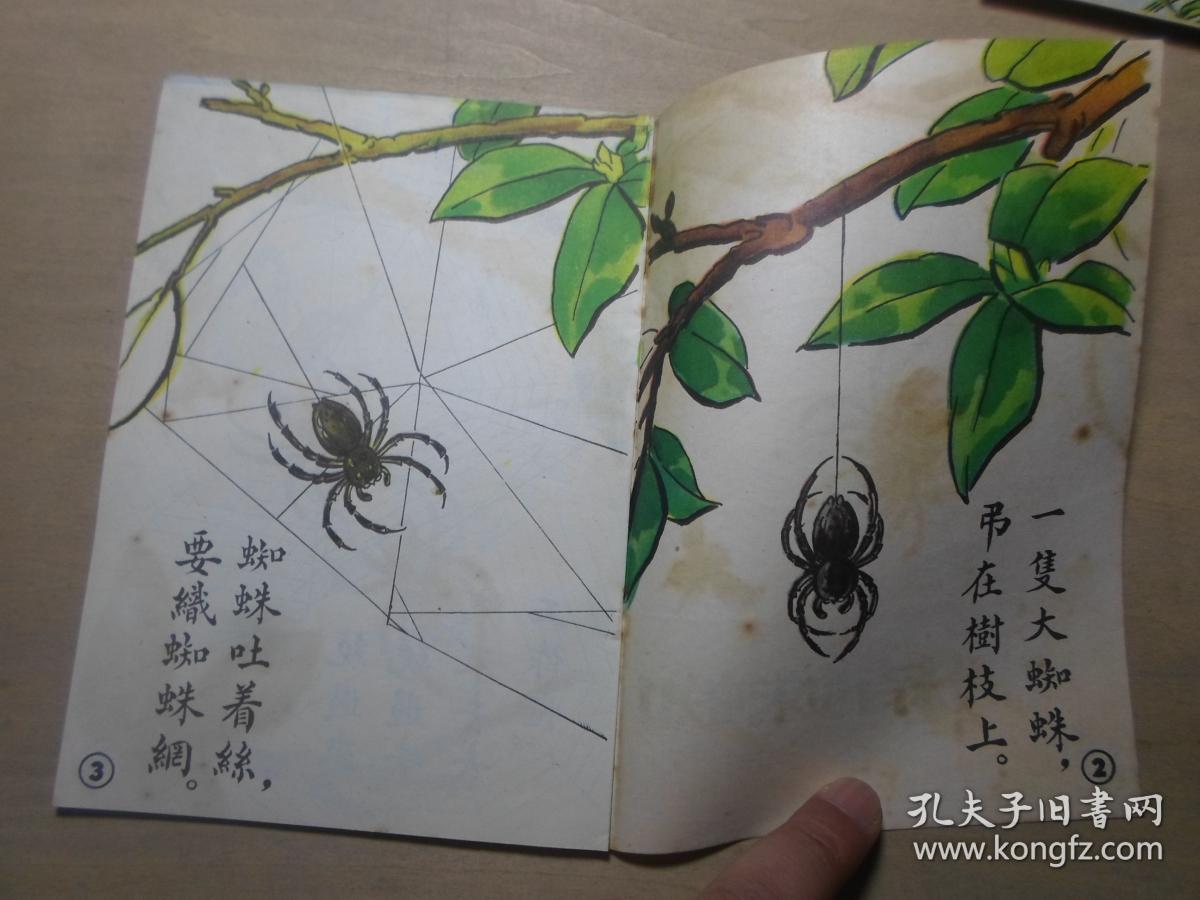 一隻大蜘蛛，
吊在樹枝上。
②
蜘蛛吐着絲，
要織蜘蛛網。
③
孔夫子旧書网
www.kongfz.com